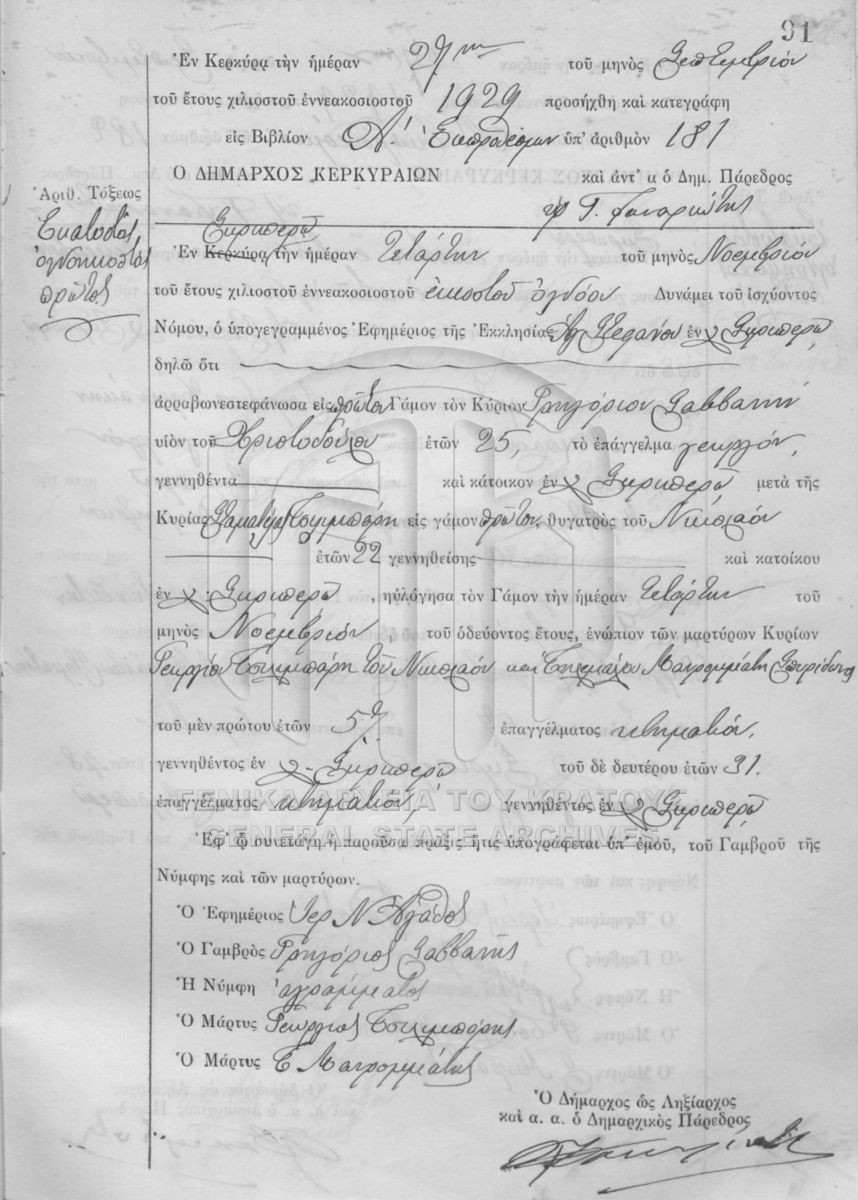 91
Ἐν Κερκύρᾳ τὴν ἡμέραν 27ην τοῦ μηνὸς Σεπτεμβρίου
τοῦ ἔτους χιλιοστοῦ ἐννεακοσιοστοῦ 1929 προσήχθη καὶ κατεγράφη
εἰς Βιβλίον Α΄. Ἐκπροθέσμων ὑπ' ἀριθμὸν 181
Ο ΔΗΜΑΡΧΟΣ ΚΕΡΚΥΡΑΙΩΝ καὶ ἀντ' α ὁ Δημ. Πάρεδρος
Ἀριθ. Τάξεως
Ἑκατοστὸς
ὀγδοηκοστὸς
πρῶτος
Σκριπερῷ
Ἐν Κερκύρᾳ τὴν ἡμέραν Τετάρτην τοῦ μηνὸς Νοεμβρίου
τοῦ ἔτους χιλιοστοῦ ἐννεακοσιοστοῦ εἰκοστοῦ ὀγδόου Δυνάμει τοῦ ἰσχύοντος
Νόμου, ὁ ὑπογεγραμμένος Ἐφημέριος τῆς Ἐκκλησίας Ἁγ Στεφάνου ἐν Σκριπερῷ
δηλῶ ὅτι
ἀρραβωνεστεφάνωσα εἰς πρῶτον Γάμον τὸν Κύριον Γρηγόριον Σαββανῆ
υἱὸν τοῦ Χριστοδούλου ἐτῶν 25, τὸ ἐπάγγελμα γεωργόν,
γεννηθέντα καὶ κάτοικον ἐν Σκριπερῷ μετὰ τῆς
Κυρίας Σταματέλα Τσιλιμπάρη εἰς γάμον πρῶτον, θυγατρὸς τοῦ Νικολάου
ἐτῶν 22 γεννηθείσης καὶ κατοίκου
ἐν Σκριπερῷ, ηὐλόγησα τὸν Γάμον τὴν ἡμέραν Τετάρτην τοῦ
μηνὸς Νοεμβρίου, τοῦ ὁδεύοντος ἔτους, ἐνώπιον τῶν μαρτύρων Κυρίων
Γεωργίου Τσιλιμπάρη τοῦ Νικολάου καὶ Μαυρομμάτη Σπυρίδωνος
τοῦ μὲν πρώτου ἐτῶν 57. ἐπαγγέλματος κτηματίου,
γεννηθέντος ἐν Σκριπερῷ τοῦ δὲ δευτέρου ἐτῶν 31.
ἐπαγγέλματος κτηματίου, γεννηθέντος ἐν Σκριπερῷ
ΓΕΝΙΚΑ ΑΡΧΕΙΑ ΤΟΥ ΚΡΑΤΟΥΣ
GENERAL STATE ARCHIVES
Ἐφ' ᾧ συνετάγη ἡ παροῦσα πρᾶξις ἥτις ὑπογράφεται ὑπ' ἐμοῦ, τοῦ Γαμβροῦ τῆς
Νύμφης καὶ τῶν μαρτύρων.
Ὁ Ἐφημέριος Ἱερ Ν Ἀγάθος
Ὁ Γαμβρὸς Γρηγόριος Σαββανῆς
Ἡ Νύμφη ἀγράμματος
Ὁ Μάρτυς Γεώργιος Τσιλιμπάρης
Ὁ Μάρτυς Ε Μαυρομμάτης
Ὁ Δήμαρχος ὡς Ληξίαρχος
καὶ α. α. ὁ Δημαρχικὸς Πάρεδρος